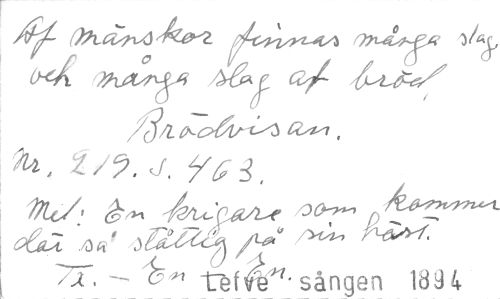 Af mänskor finnas många slag,
och många slag af bröd.
Brödvisan.
Nr. 219. s. 463.
Mel: En krigare som kommer
där så ståttlig på sin häst.
Tx. – En En.
Lefve sången 1894